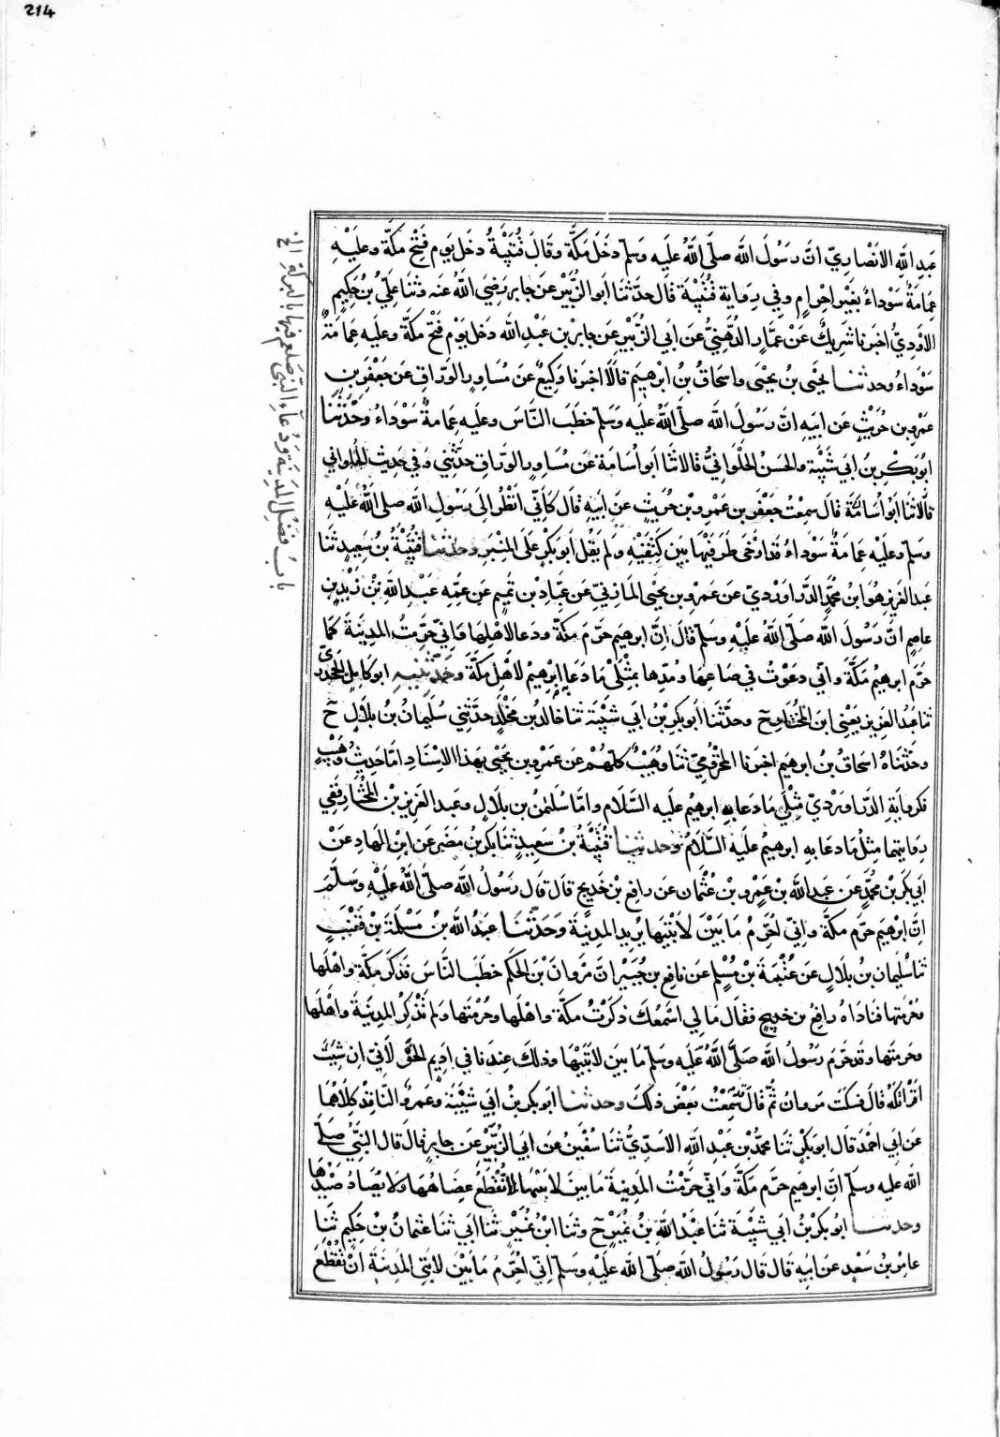 214
عَبدِ اللهِ الانصَاريّ انّ رَسُولَ الله صَلّى اللهُ علَيه وسَلّم دخَلَ مَكّةَ وقَالَ قُتَيْبَةُ دخَل يَوم فَتْحِ مَكّة وعلَيْهِ
عِمَامَةٌ سَوْداءُ بغَيْرِ احْرامٍ وفي رِوَايةِ قُتَيْبَةَ قال حَدّثَنَا أبو الزُبَيْرِ عن جابرٍ رَضِيَ اللهُ عنه وثنا عَلِيُّ بْنُ حَكِيمٍ
الاوْديُّ اخبرنا شَرِيكٌ عَنْ عَمّارٍ الدُهْنِيِّ عن ابي الزُّبَيْرِ عن جابرِ بْنِ عَبْدِ الله دخل يَوْم فَتْحِ مَكّةَ وعلَيه عِمَامَةٌ
سَوْداءُ وحدثنا يَحْيَى بْنُ يَحْيَى واسحَاقُ بْنُ ابْرهيمَ قالَا اخبرنا وَكِيعٌ عَنْ مُسَاوِرٍ الوَرّاقِ عن جَعْفَرِ بنِ
عَمْرِو بن حُرَيْثٍ عن ابيهِ انّ رَسُولَ الله صَلّى اللهُ علَيْهِ وسَلّم خطَبَ النّاسَ وعلَيهِ عِمامةٌ سَوْداءُ وحَدّثَنَا
ابُوبَكْرِ بنَ ابي شَيْبَة والحَسَنُ الحُلْوَانيُّ قالا ثنا ابو أسَامَةَ عن مُسَاوِرٍ الورّاقِ حدّثَنِي وَفي حديثِ الحُلواني
قالا ثَنا أبو أُسَامَةَ قال سَمِعْتُ جَعْفَرَ بن عَمْرِو بْنِ حُرَيثٍ عن ابيهِ قَال كَأنِّي انْظُرُ الى رَسُولِ اللهِ صلى اللهُ علَيْهِ
وسَلّم وعلَيهِ عِمَامَةٌ سَوْداءُ قَدْ ارْخَى طرَفَيْها بَيْن كَتِفَيْهِ ولم يَقُل أبو بَكْرٍ عَلَى المِنْبَرِ وحدثنا قُتَيْبَةُ بْنُ سَعِيدٍ ثَنَا
عَبدُ العَزيزِ هُوَ ابنُ مُحمّدٍ الدّرَاوَرْديّ عن عَمْرِو بنِ يَحْيَى المَازِنيّ عن عَبّادِ بْنِ تَمِيمٍ عن عَمِّهِ عَبْدِ اللهِ بْنِ زَيْدِ بنِ
عاصِمٍ انّ رَسُولَ الله صَلّى اللهُ عليْهِ وسَلّم قالَ انّ ابرهِيمَ حَرّمَ مَكّةَ ودعَا لاهْلِها وانّي حَرّمْتُ المَدِينَةَ كمَا
حَرّمَ ابرهِيمُ مَكَّةَ وانّي دعَوْتُ في صَاعِهَا ومُدِّها بمِثْلَيْ مَا دَعا إبْرهِيمُ لأهْلِ مَكّةَ وحَدّثَنِيهِ ابو كامِلٍ الجَحْدَريُّ
ثنا عَبدُ العَزِيزِ يَعْني ابنَ المُخْتارِ ح وحدّثَنا أبو بكرِ بْنُ ابي شَيْبَة ثنا خَالدُ بن مَخْلَدٍ حدّثني سُلَيمانُ بْنُ بلالٍ ح
وحدّثناهُ اسحَاقُ بنُ ابرهِيم اخبرنا المَخْزوميّ ثنا وُهَيْبٌ كلّهُمْ عن عَمْرِو بن يَحْيَى بهَذا الاسْنادِ امّا حَدِيثُ وُهَيْبٍ
فكَروايَةِ الدّراوَرْديّ مِثْلَيْ مَا دَعَا بهِ ابرهِيمُ علَيه السّلَام وامّا سُليْمٰنُ بن بلَالٍ وعَبد العَزيزِ بْنُ المُخْتارِ ففي
رِوايَتِهما مِثْلُ مَا دعَا بهِ ابرهيمُ علَيهِ السَّلَامُ وحدثنا قُتَيْبَةُ بنُ سَعِيدٍ ثنَا بَكرُ بنُ مُضَرَ عَنِ ابْنِ الهَادِ عَنْ
ابي بَكرِ بْنِ مُحمّدٍ عَن عبدِ اللهِ بْنِ عَمْرِو بْنِ عُثْمَان عن رَافِعِ بْنِ خَديجٍ قالَ قال رَسُولُ الله صَلّى اللهُ علَيْهِ وسَلّمَ
انّ ابْرهيم حَرّم مَكّةَ وانّي احَرِّمُ مَا بَيْنَ لَابَتَيْهَا يُريدُ المَدينةَ وحَدّثَنا عبدُ اللهِ بْنُ مَسْلَمَةَ بْنِ قَعْنَبٍ
ثنا سُلَيمان بنُ بلَالٍ عن عُتْبَةَ بنِ مُسْلِمٍ عن نافعِ بْنِ جُبَيْرٍ انّ مَرْوانَ بْنَ الحَكَمِ خطَبَ النّاسَ فذكَرَ مَكّةَ واهْلَها
وحُرْمَتَها فنَاداهُ رافِعُ بن خديجٍ فقَال مَا لِي اسْمَعُكَ ذكَرْتَ مَكّةَ واهْلَها وحُرْمَتَها ولم تَذْكُرِ المدِينَةَ واهْلَها
وحُرمتَها وقد حَرّمَ رَسُولُ الله صَلَّى اللهُ علَيْهِ وسَلّم مَا بَين لابَتَيْهَا وذلك عندَنا في اديمٍ خَوْلانيّ ان شِئْتَ
أقْرَأتُكَهُ قالَ فسكتَ مَروانُ ثُمّ قالَ قَدْ سَمِعْتُ بَعْضَ ذلكَ وحدثنا ابوبكرِ بْنُ ابي شَيْبَةَ وعَمرٌو النّاقدُ كلَاهُما
عن ابي احْمَدَ قال ابوبَكرٍ ثنا مُحمّدُ بْنُ عَبْدِ الله الاسَديُّ ثنا سُفْيٰنُ عن ابي الزُبَيْرِ عن جابرٍ قال قال النَّبيُّ صَلّى
اللهُ عليه وسَلّم انّ ابرهيم حَرّم مَكّةَ وَانّي حَرّمْتُ المَدينةَ مَا بينَ لابَتَيْهَا لا يُقْطَعُ عِضَاهُهَا ولا يُصَادُ صَيْدُها
وحدثنا ابُوبَكرِ بْنُ ابي شَيْبَةَ ثنا عَبْدُ اللهِ بْنُ نُمَيْرٍ ح وثَنا ابْنُ نُمَيْرٍ ثنا ابي ثنا عُثمانُ بْنُ حَكِيمٍ ثَنا
عامِرُ بن سَعْدٍ عن ابيهِ قالَ قالَ رَسُولُ الله صَلّى اللهُ علَيْهِ وسَلّم انّي احَرِّمُ مَا بَيْنَ لابَتَي المَدِينَةِ انْ يُقْطَعَ
بابُ فَضْلِ المَدِينَةِ ودُعَاءِ النّبيّ صلعم فيها بالبركة الخ